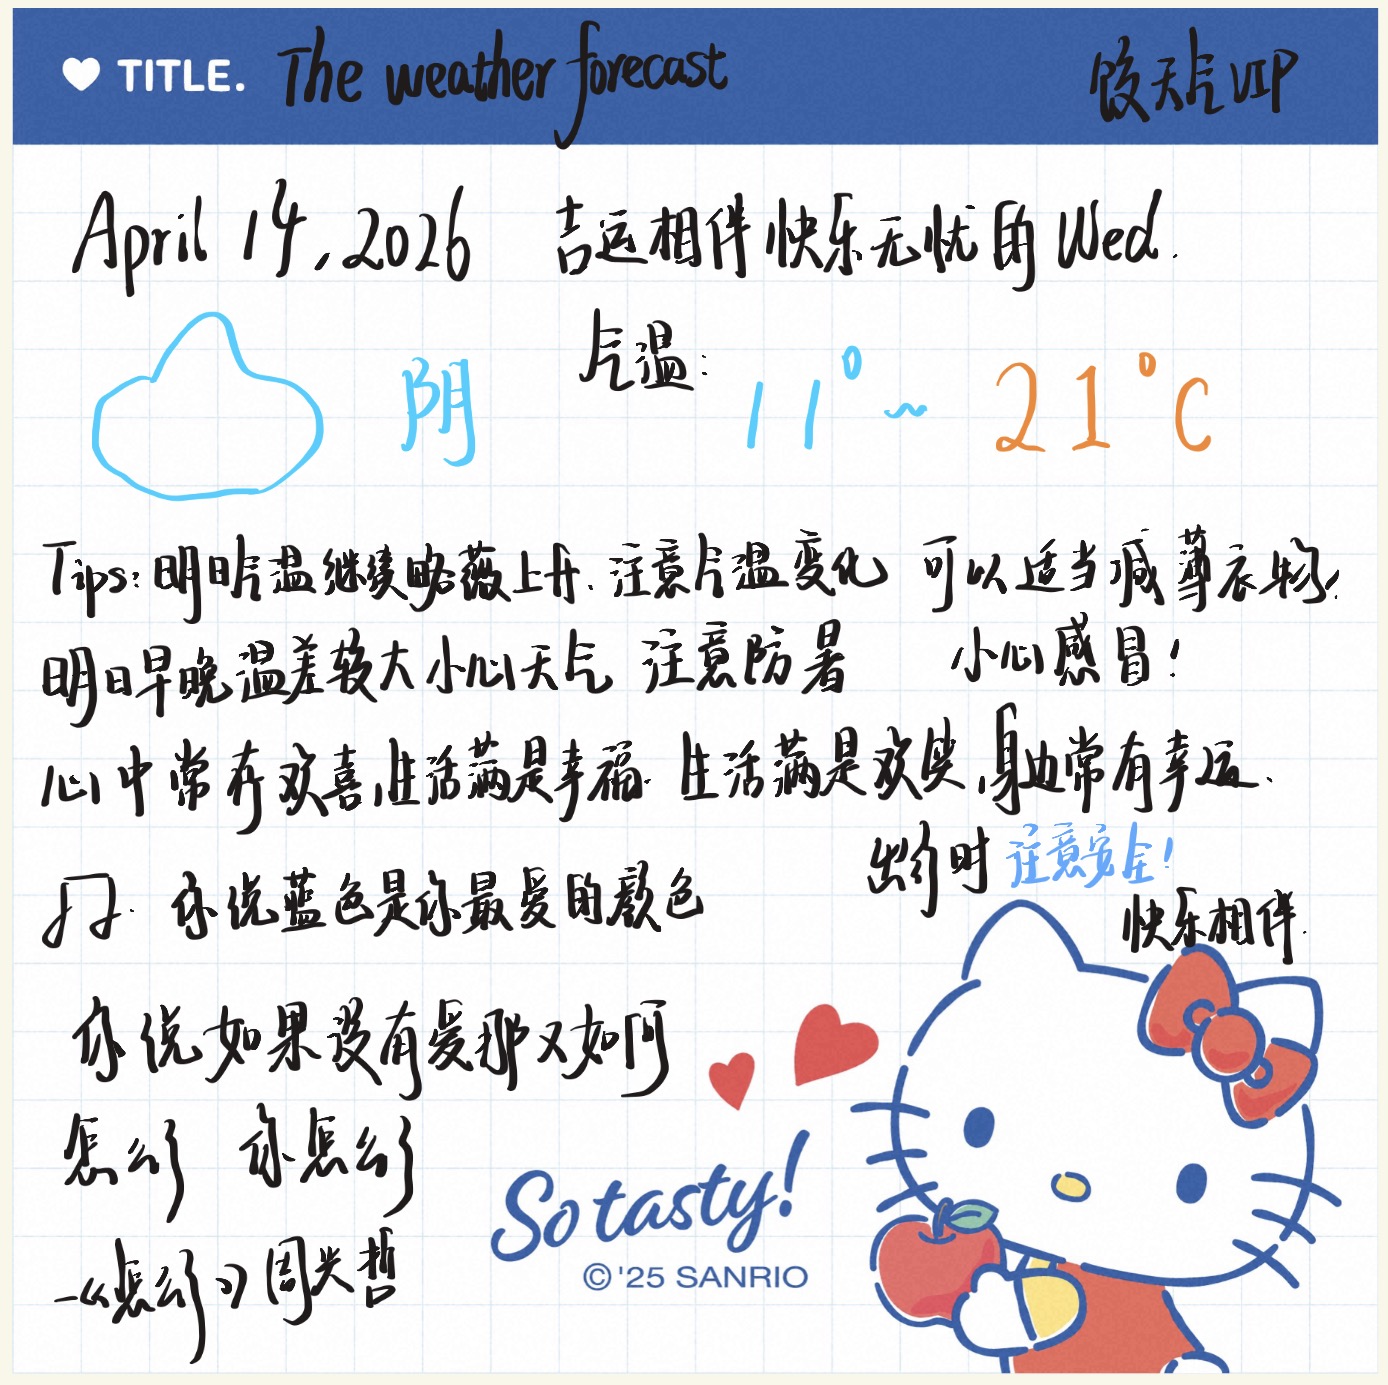 TITLE. The weather forecast 饺天气VIP
April 14, 2026 吉运相伴快乐无忧的Wed.
阴 气温: 11°~21°C
Tips: 明日气温继续略微上升. 注意气温变化 可以适当减薄衣物.
明日早晚温差较大 小心天气 注意防暑 小心感冒!
心中常有欢喜,生活满是幸福. 生活满是欢笑,身边常有幸运.
出行时 注意安全!
♫. 你说蓝色是你最爱的颜色
快乐相伴.
你说如果没有爱那又如何
怎么了 你怎么了
So tasty!
—《怎么了》周兴哲
©'25 SANRIO